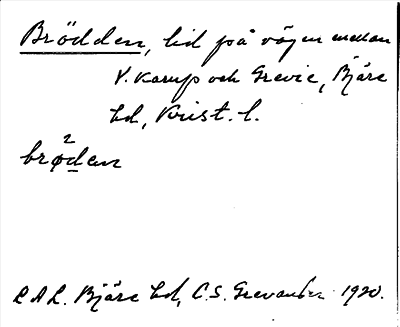 Brödden, lid på vägen mellan
V. Karup och Grevie, Bjäre
hd, Krist. l.
2
brøden
L A L. Bjäre hd, C.S. Grevander 1920.